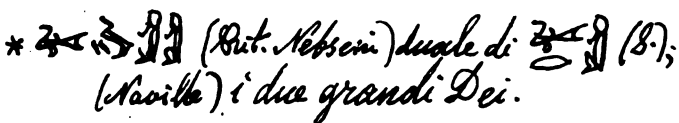 * (Brit. Nebseni) duale di (S.);
(Naville) i due grandi Dei.